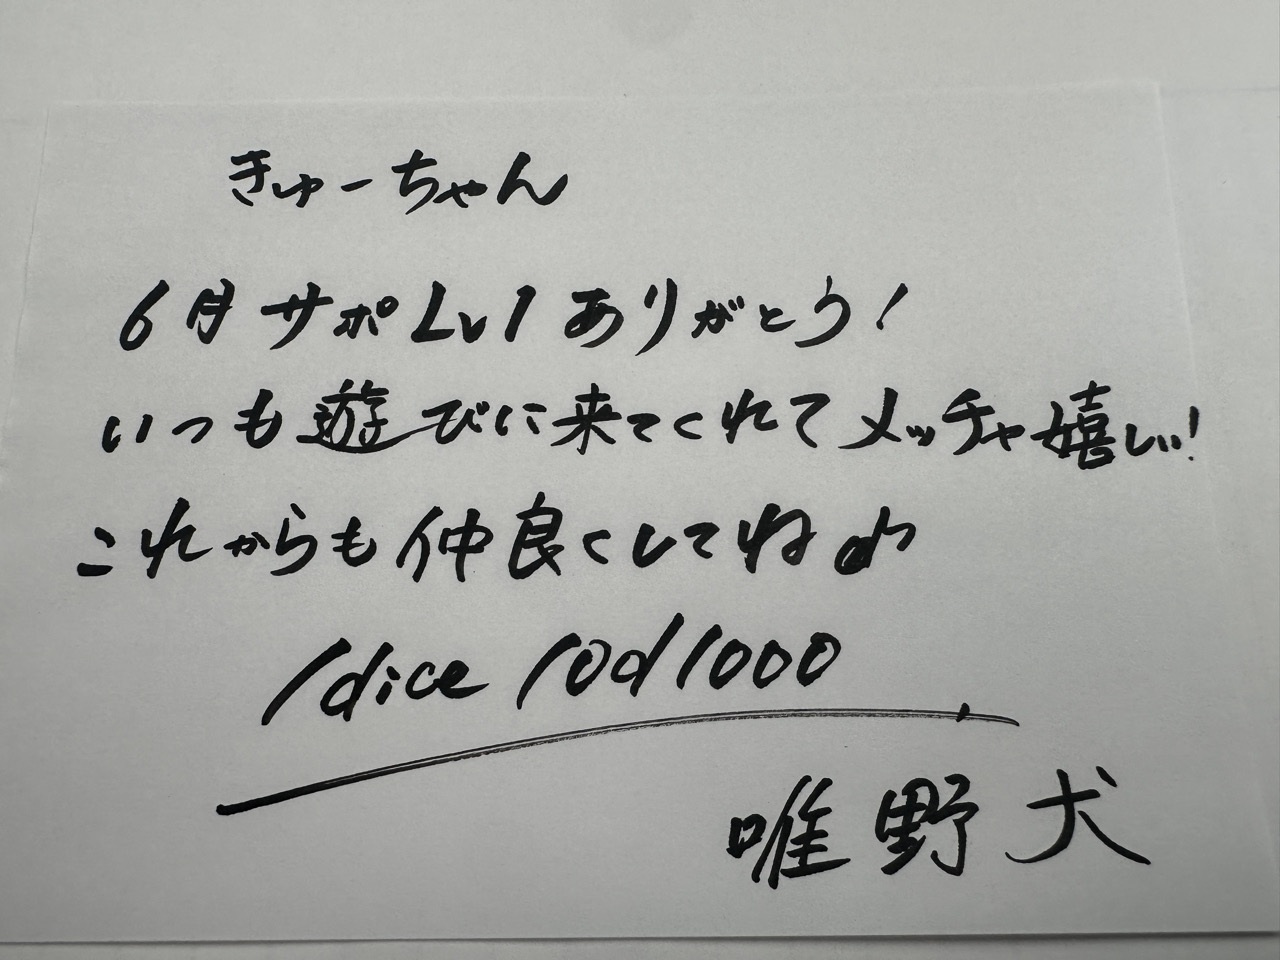 きゅーちゃん
6月サポLv1ありがとう!
いつも遊びに来てくれてメッチャ嬉しい!
これからも仲良くしてね♪
/dice 10d1000
唯野犬